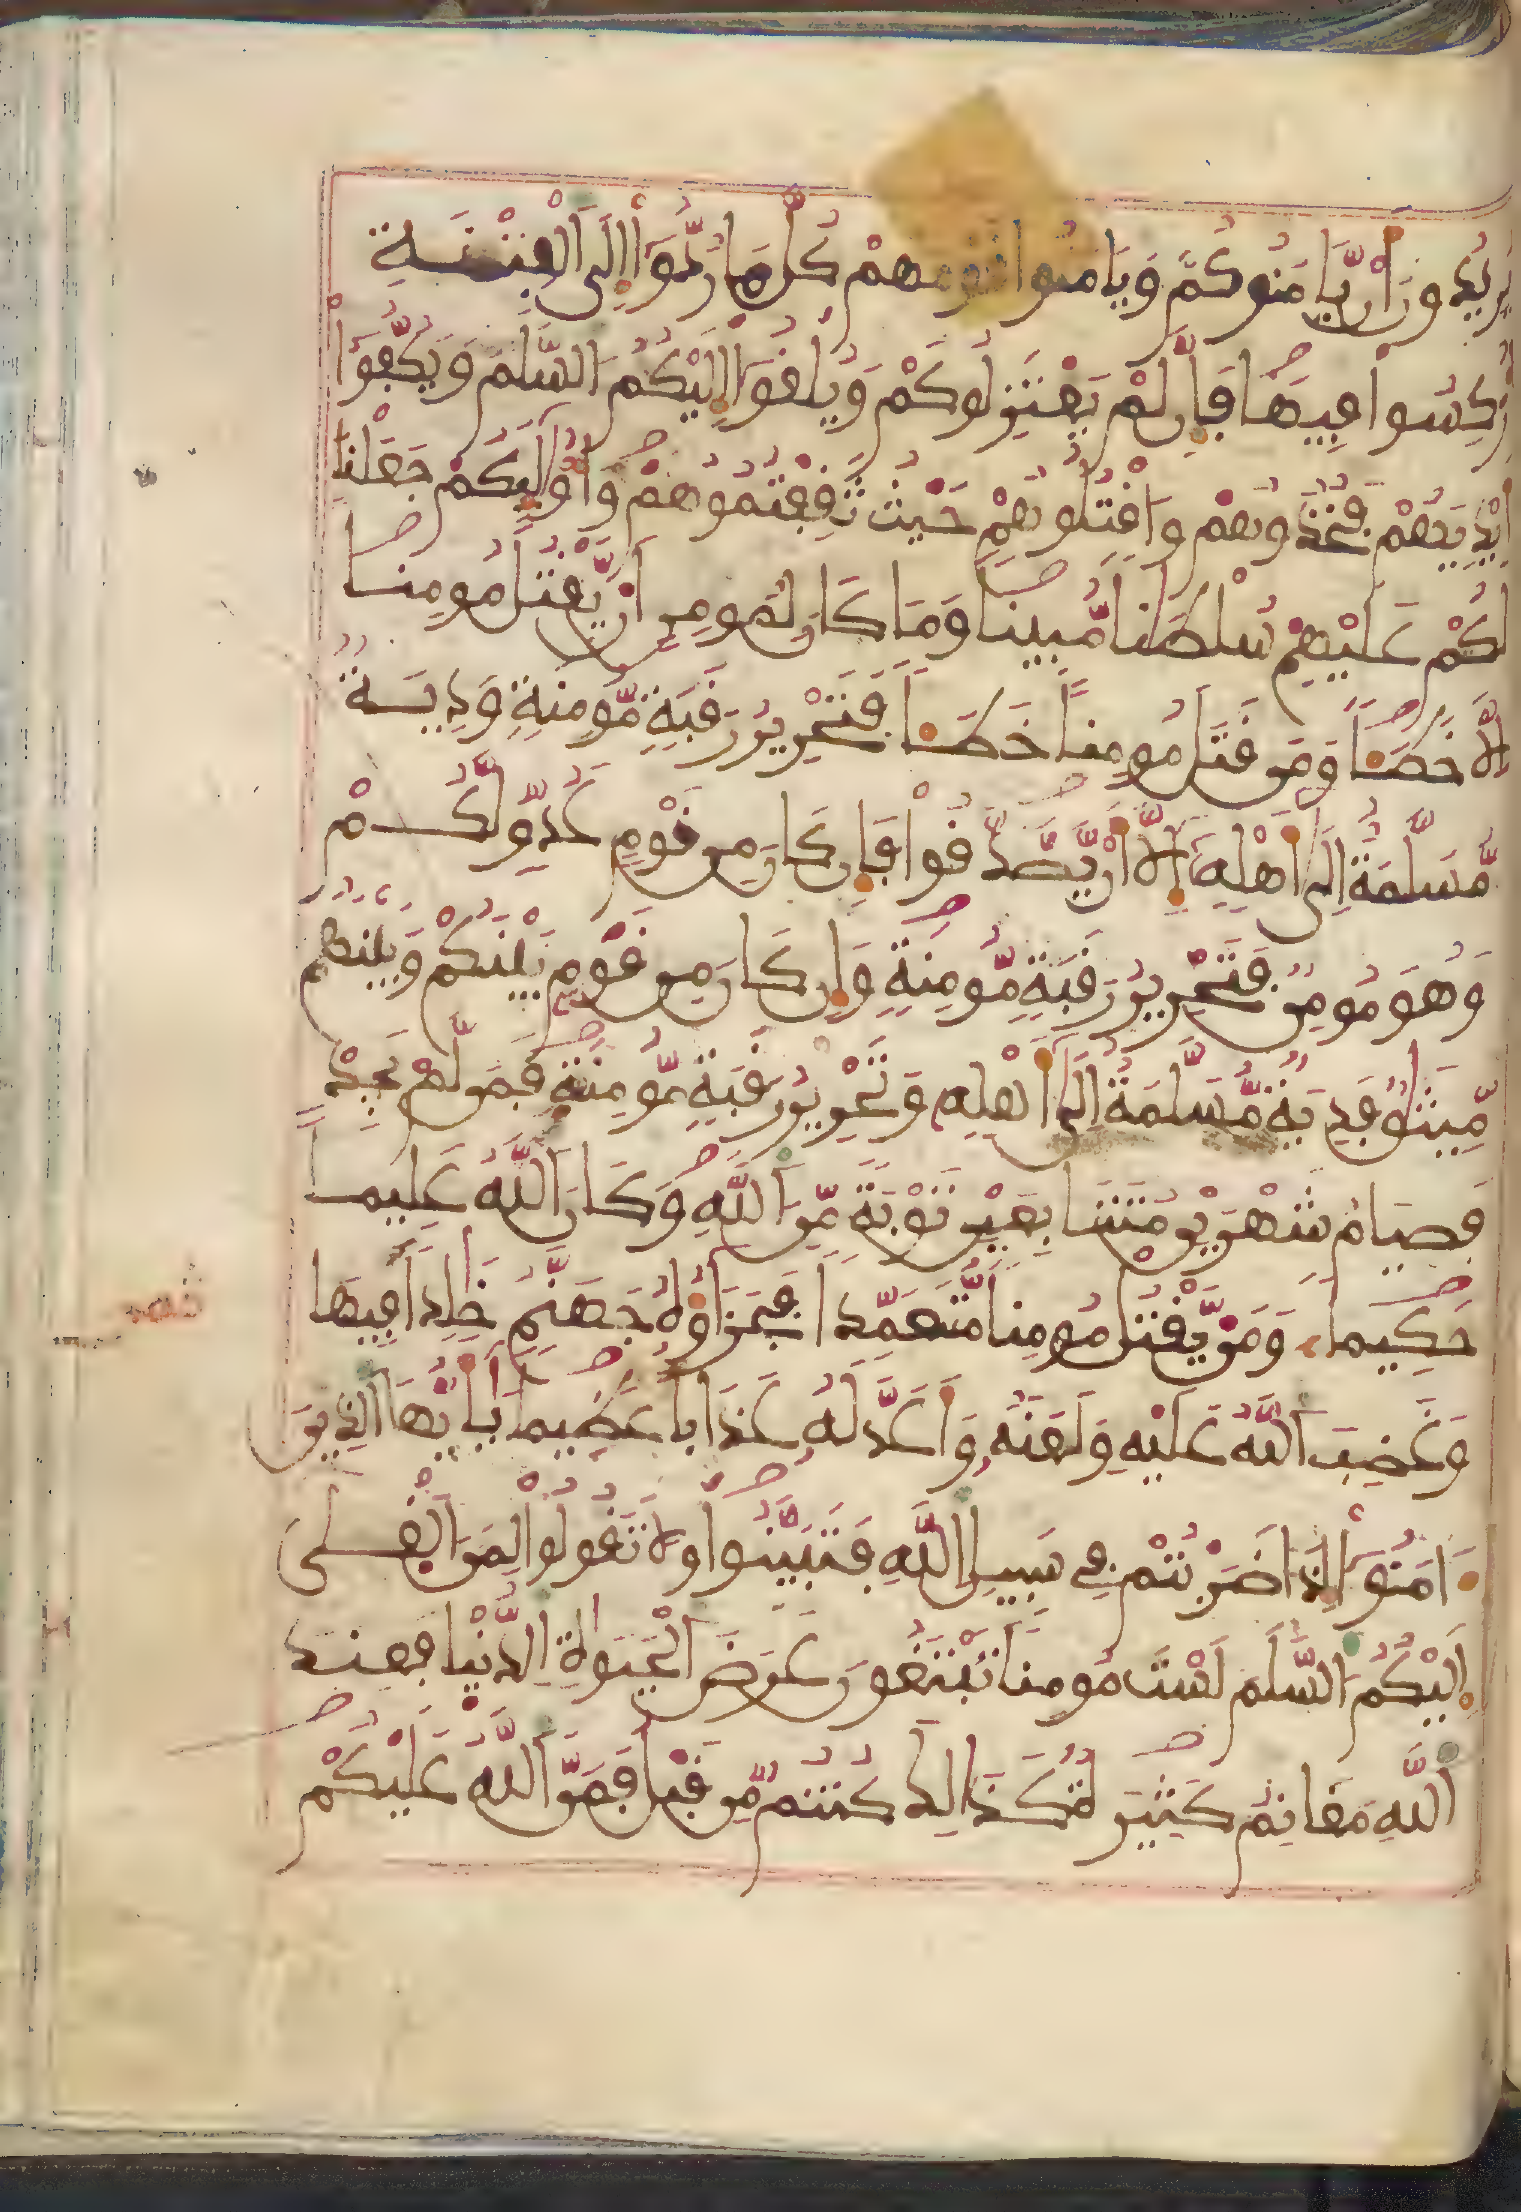 يُرِيدُونَ أَنْ يَّامَنُوكُمْ وَيَامَنُوا قَوْمَهُمْ كُلَّ مَا رُدُّوٓا إِلَى اَلْفِتْنَةِ
أُرْكِسُوا فِيهَا فَإِن لَّمْ يَعْتَزِلُوكُمْ وَيُلْقُوٓا إِلَيْكُمُ السَّلَمَ وَيَكُفُّوٓا
أَيْدِيَهُمْ فَخُذُوهُمْ وَاقْتُلُوهُمْ حَيْثُ ثَقِفْتُمُوهُمْ وَأُوْلَٰٓئِكُمْ جَعَلْنَا
لَكُمْ عَلَيْهِمْ سُلْطَٰنًا مُّبِينًا وَمَا كَانَ لِمُومِنٍ أَنْ يَّقْتُلَ مُومِنًا
إِلَّا خَطَـًٔا وَمَن قَتَلَ مُومِنًا خَطَـًٔا فَتَحْرِيرُ رَقَبَةٍ مُّومِنَةٍ وَدِيَةٌ
مُّسَلَّمَةٌ إِلَىٰٓ أَهْلِهِۦٓ إِلَّآ أَنْ يَّصَّدَّقُوا فَإِن كَانَ مِن قَوْمٍ عَدُوٍّ لَّكُمْ
وَهُوَ مُومِنٌ فَتَحْرِيرُ رَقَبَةٍ مُّومِنَةٍ وَإِن كَانَ مِن قَوْمٍ بَيْنَكُمْ وَبَيْنَهُم
مِّيثَٰقٌ فَدِيَةٌ مُّسَلَّمَةٌ إِلَىٰٓ أَهْلِهِۦ وَتَحْرِيرُ رَقَبَةٍ مُّومِنَةٍ فَمَن لَّمْ يَجِدْ
فَصِيَامُ شَهْرَيْنِ مُتَتَابِعَيْنِ تَوْبَةً مِّنَ اَللَّهِ وَكَانَ اَللَّهُ عَلِيمًا
حَكِيمًا وَمَنْ يَّقْتُلْ مُومِنًا مُّتَعَمِّدًا فَجَزَآؤُهُۥ جَهَنَّمُ خَٰلِدًا فِيهَا
وَغَضِبَ اَللَّهُ عَلَيْهِ وَلَعَنَهُۥ وَأَعَدَّ لَهُۥ عَذَابًا عَظِيمًا يَٰٓأَيُّهَا اَلذِينَ
ءَامَنُوٓا إِذَا ضَرَبْتُمْ فِي سَبِيلِ اِللَّهِ فَتَبَيَّنُوا وَلَا تَقُولُوا لِمَنَ اَلْقَىٰٓ
إِلَيْكُمُ السَّلَمَ لَسْتَ مُومِنًا تَبْتَغُونَ عَرَضَ اَلْحَيَوٰةِ اِلدُّنْيَا فَعِندَ
اَللَّهِ مَغَانِمُ كَثِيرَةٌ كَذَٰلِكَ كُنتُم مِّن قَبْلُ فَمَنَّ اَللَّهُ عَلَيْكُمْ